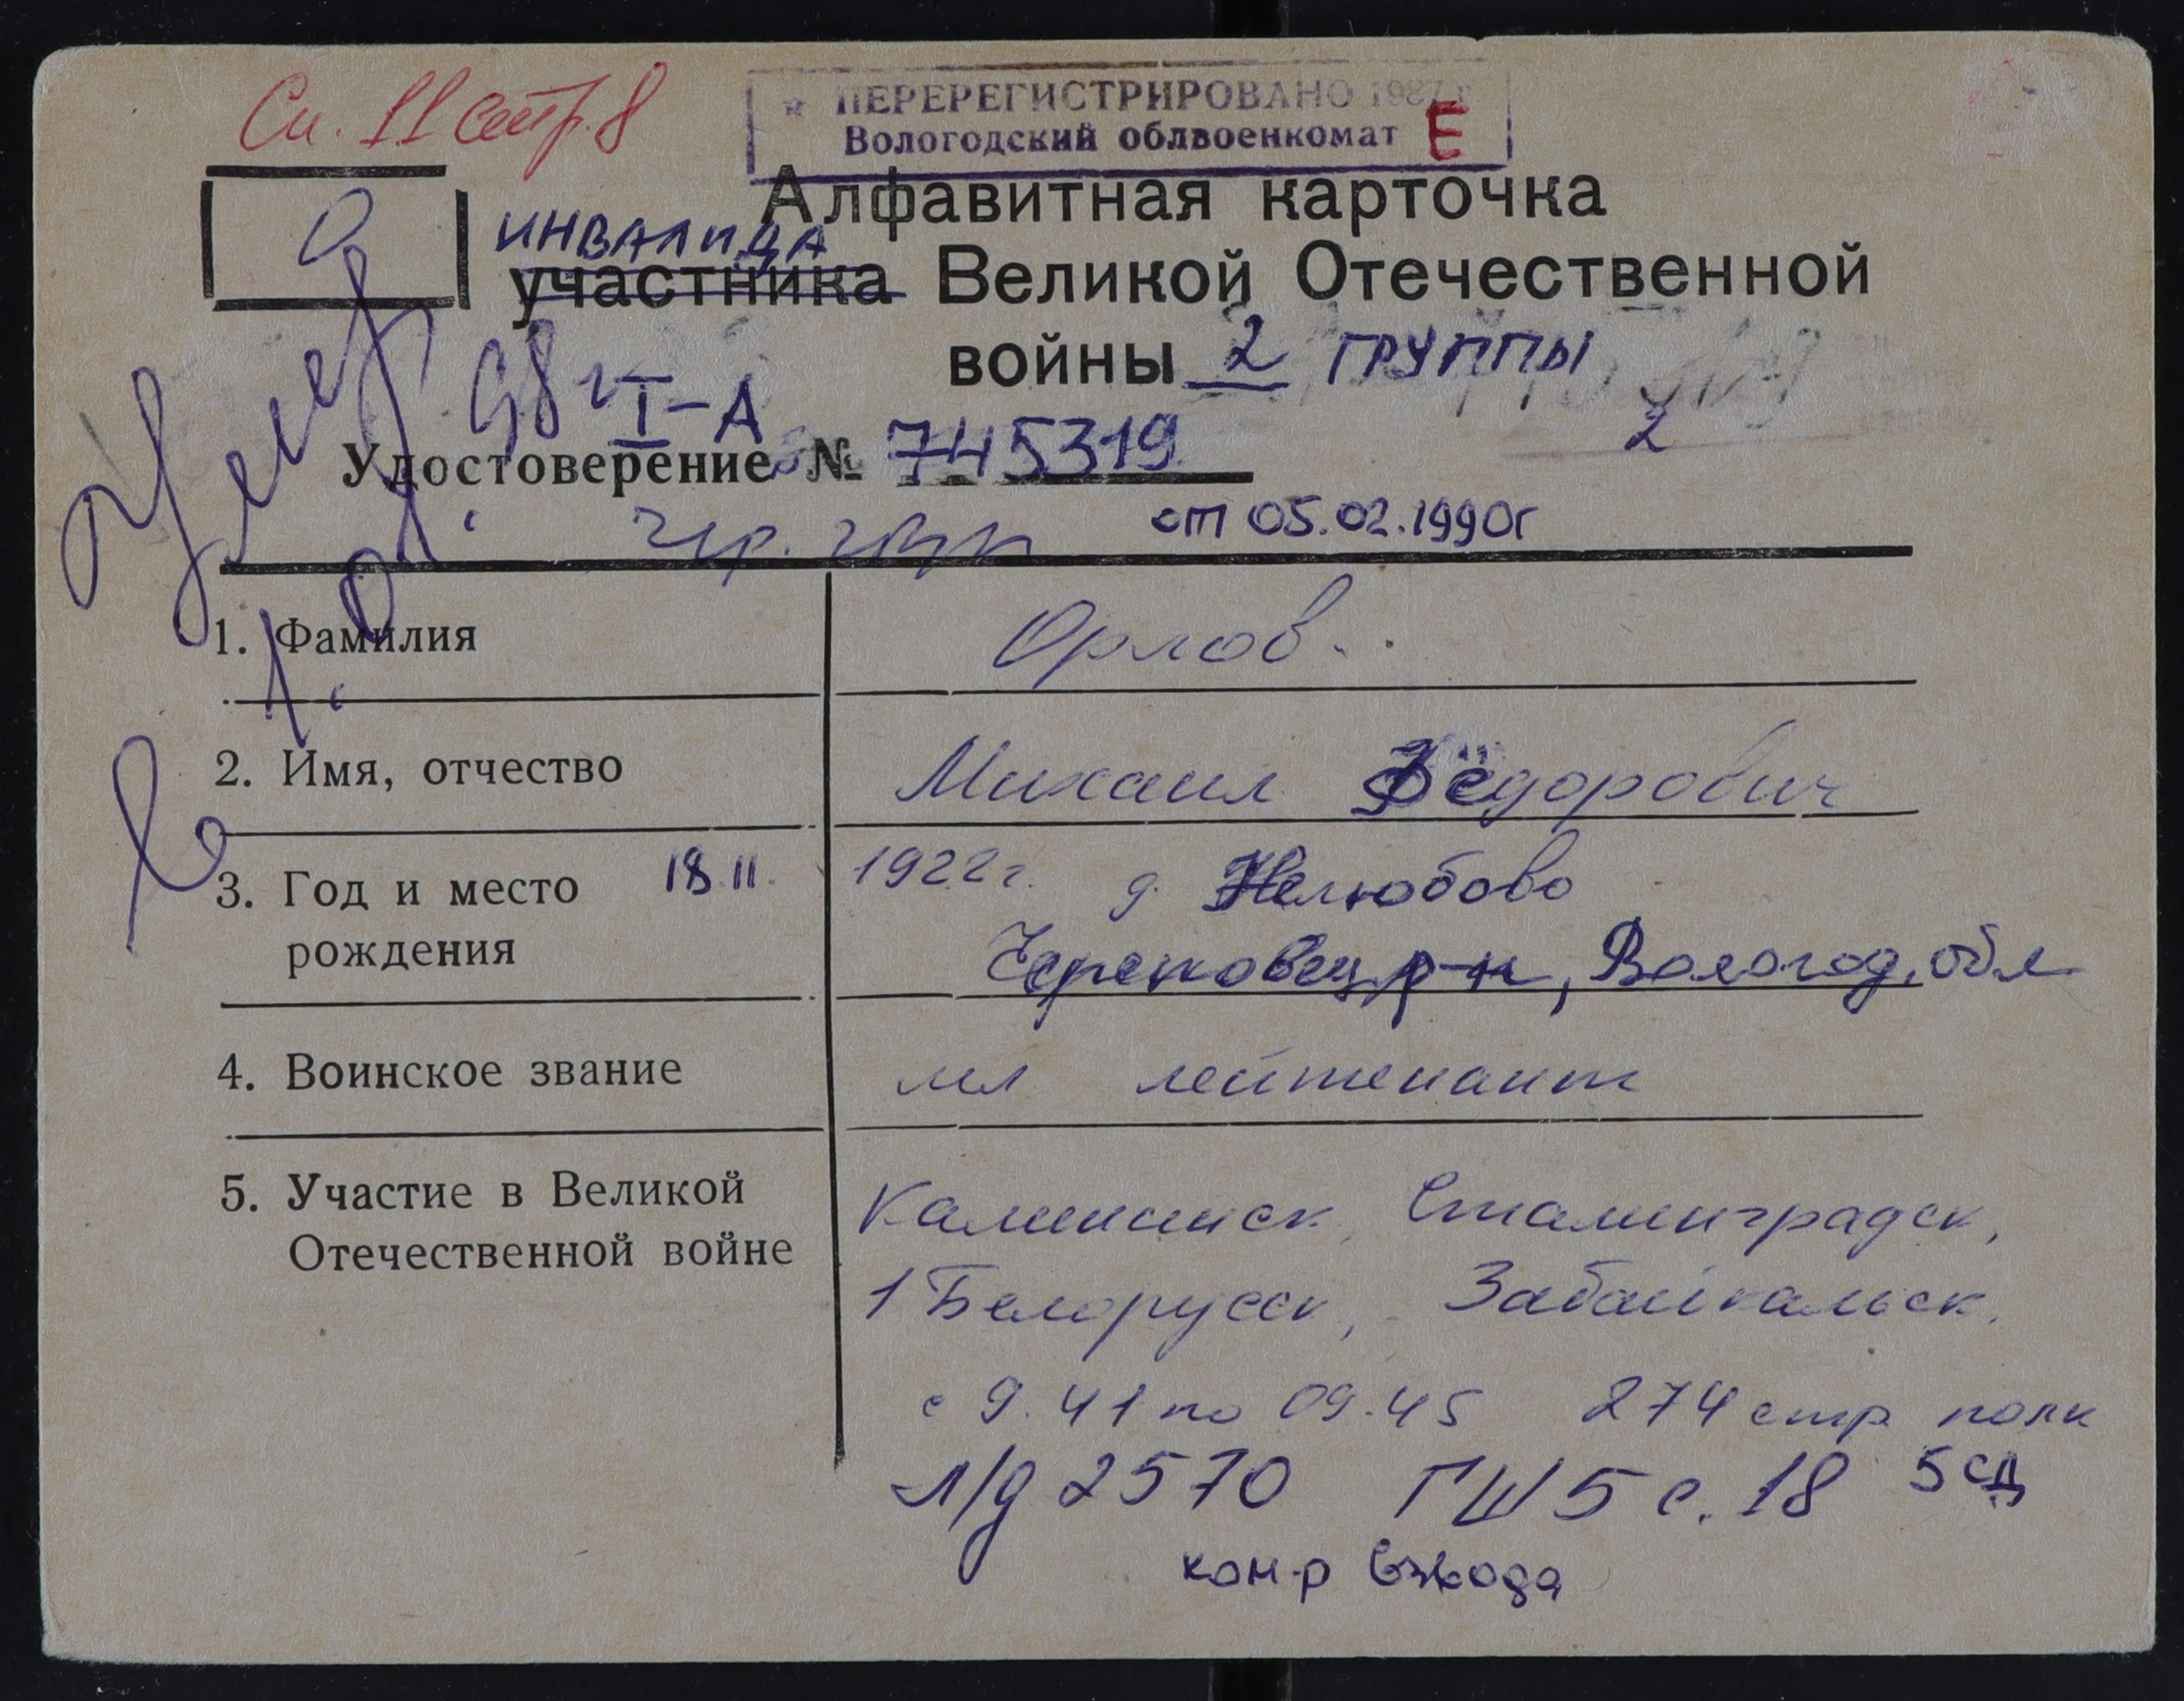 Сп. 11 стр. 8
ПЕРЕРЕГИСТРИРОВАНО 1987 г
Вологодский облвоенкомат Е
Алфавитная карточка
ИНВАЛИДА
участника Великой Отечественной
войны 2 ГРУППЫ
2
Умер
98 г I-А
Удостоверение № 745319
от 05.02.1990г
1. Фамилия Орлов
2. Имя, отчество Михаил Фёдорович
3. Год и место рождения 18.11. 1922 г. д. Нелюбово
Череповец р-н, Вологод. обл
4. Воинское звание мл лейтенант
5. Участие в Великой Отечественной войне Калининск, Сталинградск,
1 Белорусск, Забайкальск.
с 9.41 по 09.45 274 стр полк
л/д 2570 ГШ 5 с. 18 5 СД
ком-р взвода